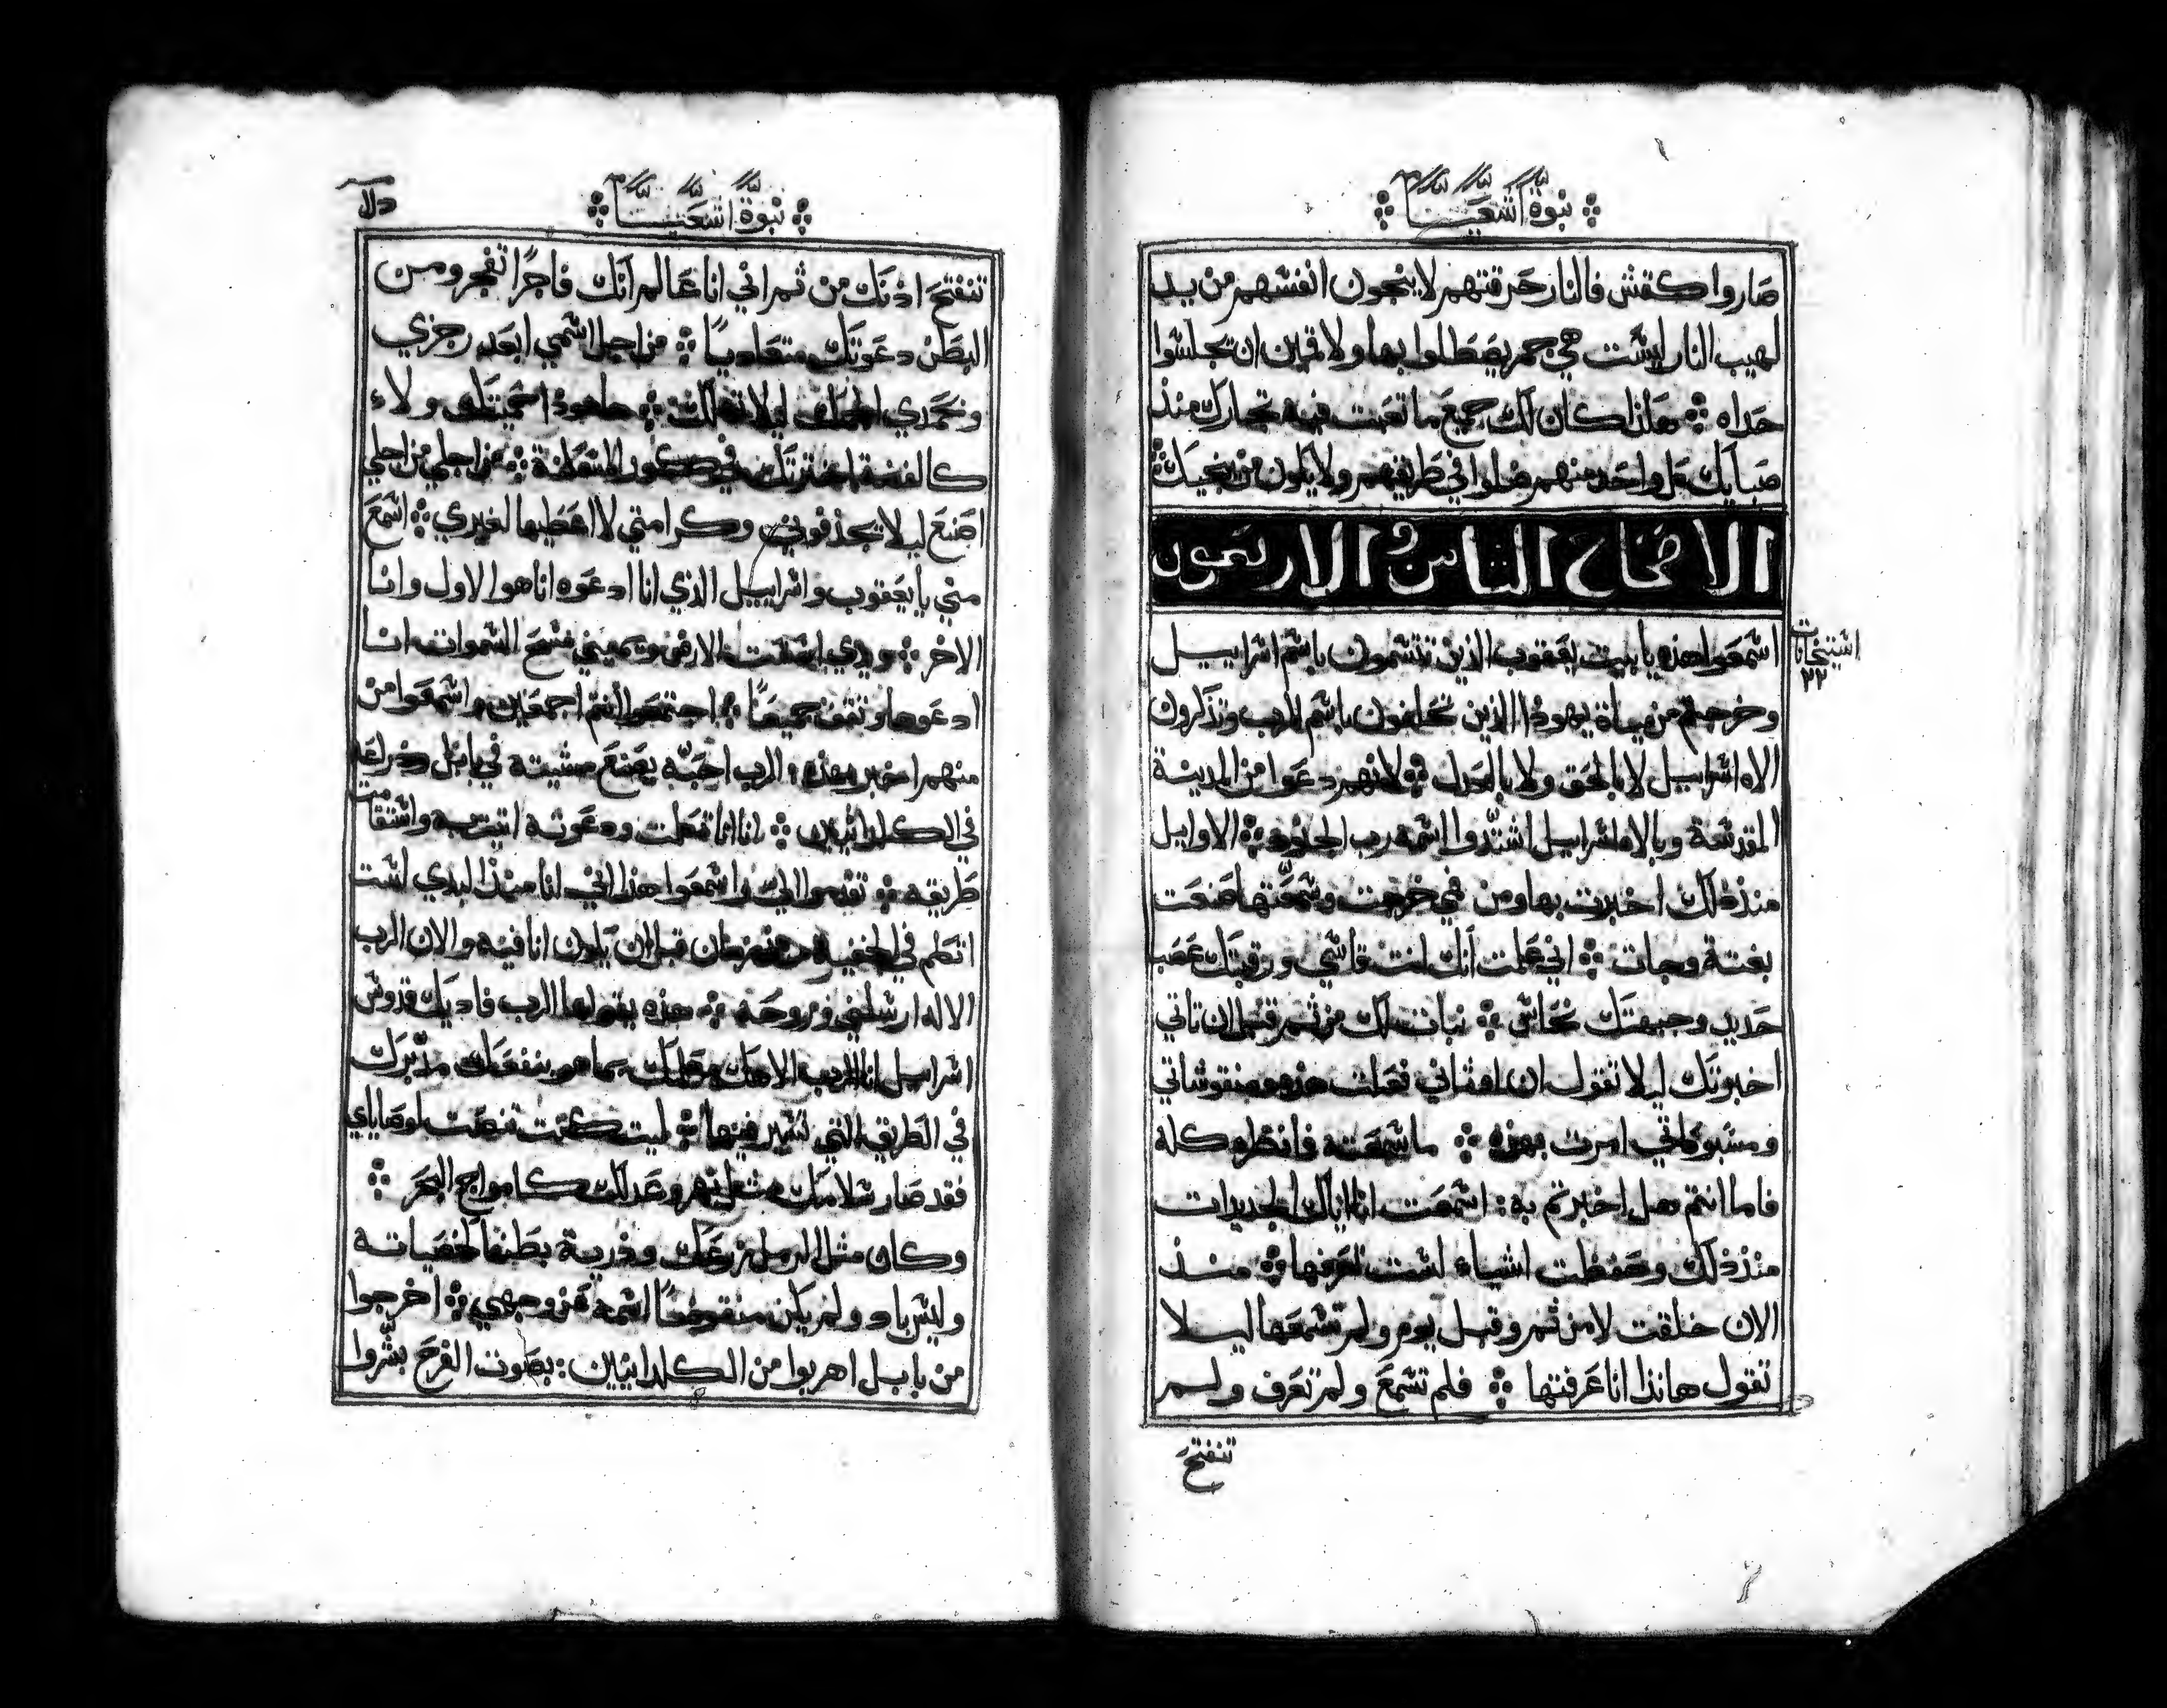 نبوة اشعيا
صاروا كقش فالنار حرقتهم لا ينجون انفسهم من يد
لهيب النار ليست هي جمر يصطلوا بها ولا قمين ان تجلسوا
حداه هكذا كان لك جميع ما تعبت فيه تجارك منذ
صبايك كل واحد منهم ضلوا في طريقهم ولا يكون من ينجيك
الاصحاح الثامن والاربعون
استيخانات
٢٢
اسمعوا هذه يا بيت يعقوب الذين تتسمون باسم اسراييل
وخرجتم من مياة يهوذا الذين تحلفون باسم الرب وتذكرون
الاه اسراييل لا بالحق ولا بالعدل لانهم دعوا من المدينة
المقدسة وبالاه اسراييل اشتدوا اسمه رب الجنود الاوايل
منذ ذلك اخبرت بها ومن فمي خرجت وسمعتها صنعت
بغتة وجات اني علمت انك انت قاسي ورقبتك عصب
حديد وجبهتك نحاس نبات لك من ثم قبل ان تاتي
اخبرتك ليلا تقول ان اوثاني فعلت هذه ومنقوشاتي
ومسبوكاتي امرت بهذه ما سمعته فانظره كله
فاما انتم هل اخبرتم به اسمعت انا اياك الجديدات
منذ ذلك وحفظت اشياء لست تعرفها منذ
الان خلقت لا من ثم وقبل يوم ولم تسمعها ليلا
تقول هانذا انا عرفتها فلم تسمع ولم تعرف ولم
تنفتح
نبوة اشعيا
تنفتح اذنك من ثم اني انا عالم انك فاجرا تفجر ومن
البطن دعوتك متعاديا من اجل اسمي ابعد رجزي
وبحمدي الجمك ليلا تهلك هاهوذا احميتك ولاء
كالفضة اخترتك في كور المسكنة من اجلي من اجلي
اصنع ليلا يجذفوني وكرامتي لا اعطيها لغيري اسمع
مني يا يعقوب واسراييل الذي انا ادعوه انا هوا الاول وانا
الاخر ويدي اسست الارض ويميني مسح السموات انا
ادعوها وتقف جميعا اجتمعوا انتم اجمعين واسمعوا من
منهم اخبر بهذه الرب احبه يصنع مشيته في بابل وذراعه
في الكلدانيين انا انا تكلمت ودعوته اتيت به واستقامت
طريقه تقدموا الي واسمعوا هذا اني انا منذ البدي لست
اتكلم في الخفية من زمان قبل ان يكون انا فيه والان الرب
الاله ارسلني وروحه هذه يقولها الرب فاديك قدوس
اسراييل انا الرب الاهك معلمك بما هو ينفعك مدبرك
في الطريق التي تسير فيها ليت كنت تنصت لوصاياي
فقد صار سلامك مثل نهر وعدلك كامواج البحر
وكان مثل الرمل زرعك وذرية بطنك كحصياته
وليس باد ولم يكن منقوضا اسمه من وجهي اخرجوا
من بابل اهربوا من الكلدانيين بصوت الفرح بشروا